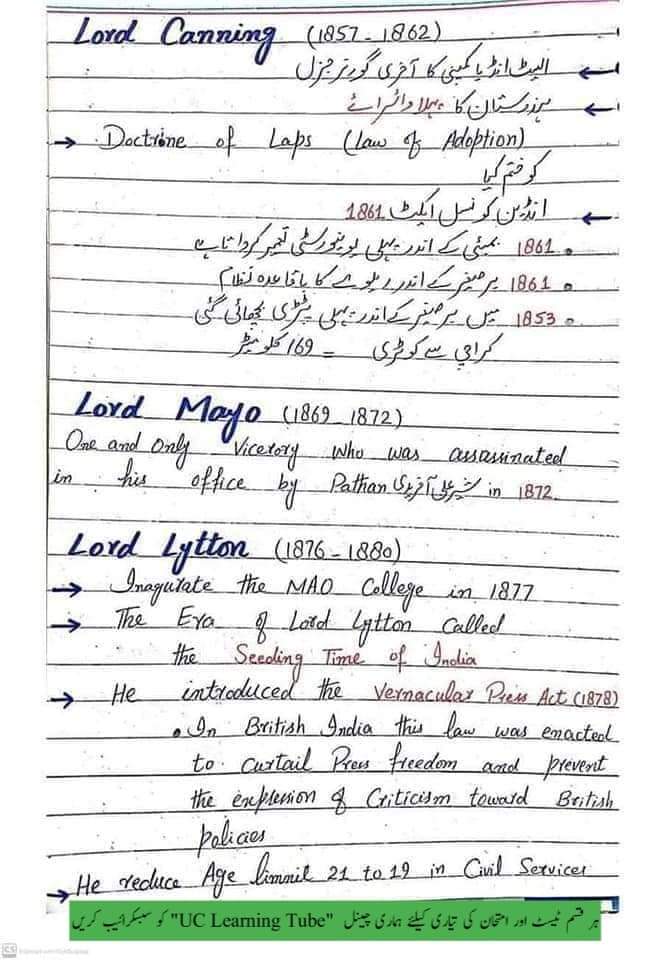 Lord Canning (1857-1862)
ایسٹ انڈیا کمپنی کا آخری گورنر جنرل ←
ہندوستان کا پہلا وائسرائے ←
→ Doctrine of Laps (Law of Adoption)
کو ختم کیا
انڈین کونسل ایکٹ 1861 ←
• 1861 بمبئی کے اندر پہلی یونیورسٹی تعمیر کرواتا ہے
• 1861 برصغیر کے اندر ریلوے کا باقاعدہ نظام
• 1853 میں برصغیر کے اندر پہلی پٹڑی بچھائی گئی
کراچی سے کوٹری = 169 کلومیٹر
Lord Mayo (1869-1872)
One and Only Vicerory who was assassinated
in his office by Pathan شیر علی آفریدی in 1872.
Lord Lytton (1876-1880)
→ Inagurate the MAO College in 1877
→ The Era of Lord Lytton Called
the Seeding Time of India
→ He introduced the Vernacular Press Act (1878)
• In British India this law was enacted
to curtail Press freedom and prevent
the expression of Criticism toward British
policies
→ He reduce Age limmit 21 to 19 in Civil Services
ہر قسم ٹیسٹ اور امتحان کی تیاری کیلئے ہماری چینل "UC Learning Tube" کو سبسکرائیب کریں
CS